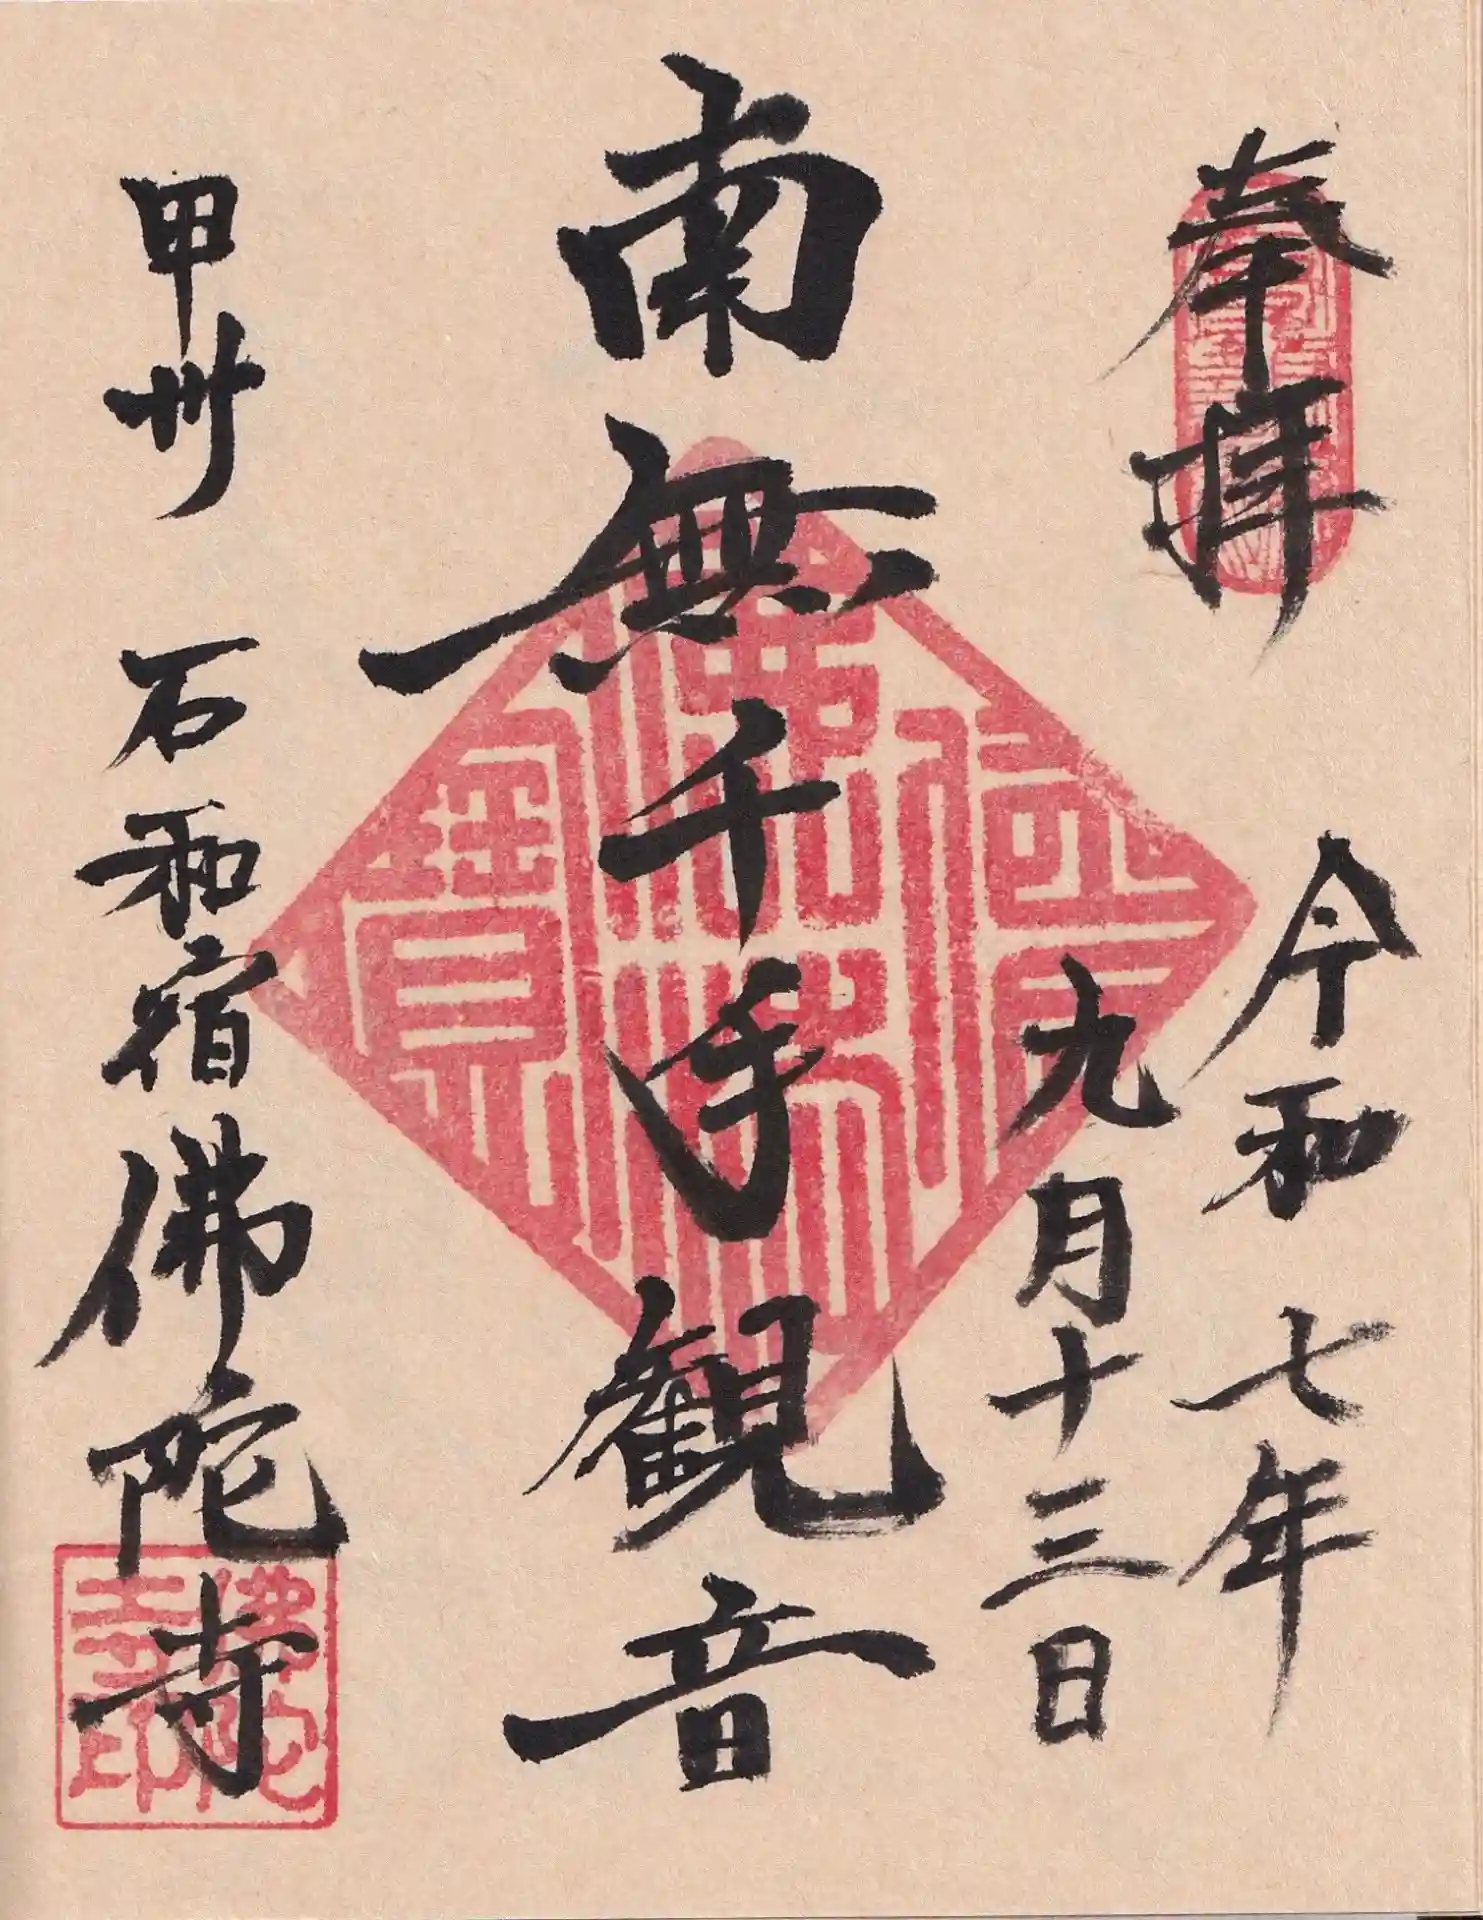 奉拝
令和七年
九月十三日
南無千手観音
甲州 石和宿佛陀寺
佛法僧寳
佛陀寺印